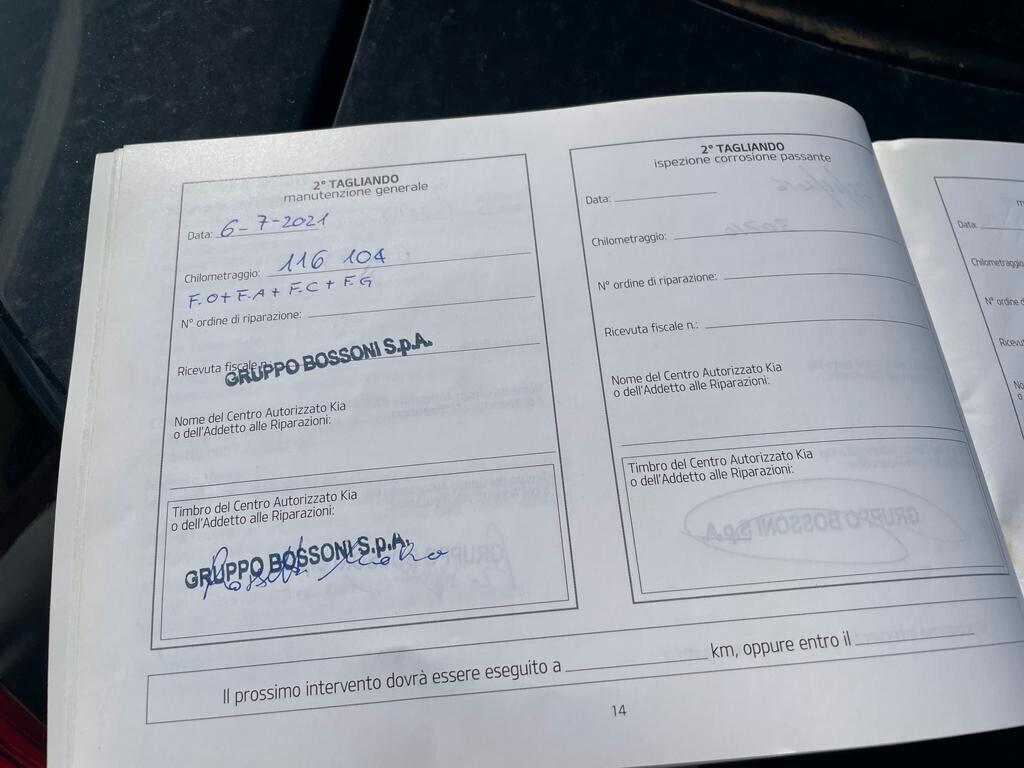 2° TAGLIANDO
manutenzione generale
Data: 6-7-2021
Chilometraggio: 116 104
F.O + F.A + F.C + F.G
N° ordine di riparazione:
Ricevuta fiscale n.:
GRUPPO BOSSONI S.p.A.
Nome del Centro Autorizzato Kia
o dell'Addetto alle Riparazioni:
Timbro del Centro Autorizzato Kia
o dell'Addetto alle Riparazioni:
GRUPPO BOSSONI S.p.A.
2° TAGLIANDO
ispezione corrosione passante
Data:
Chilometraggio:
N° ordine di riparazione:
Ricevuta fiscale n.:
Nome del Centro Autorizzato Kia
o dell'Addetto alle Riparazioni:
Timbro del Centro Autorizzato Kia
o dell'Addetto alle Riparazioni:
Il prossimo intervento dovrà essere eseguito a km, oppure entro il
14
Data:
Chilometraggio
N° ordine